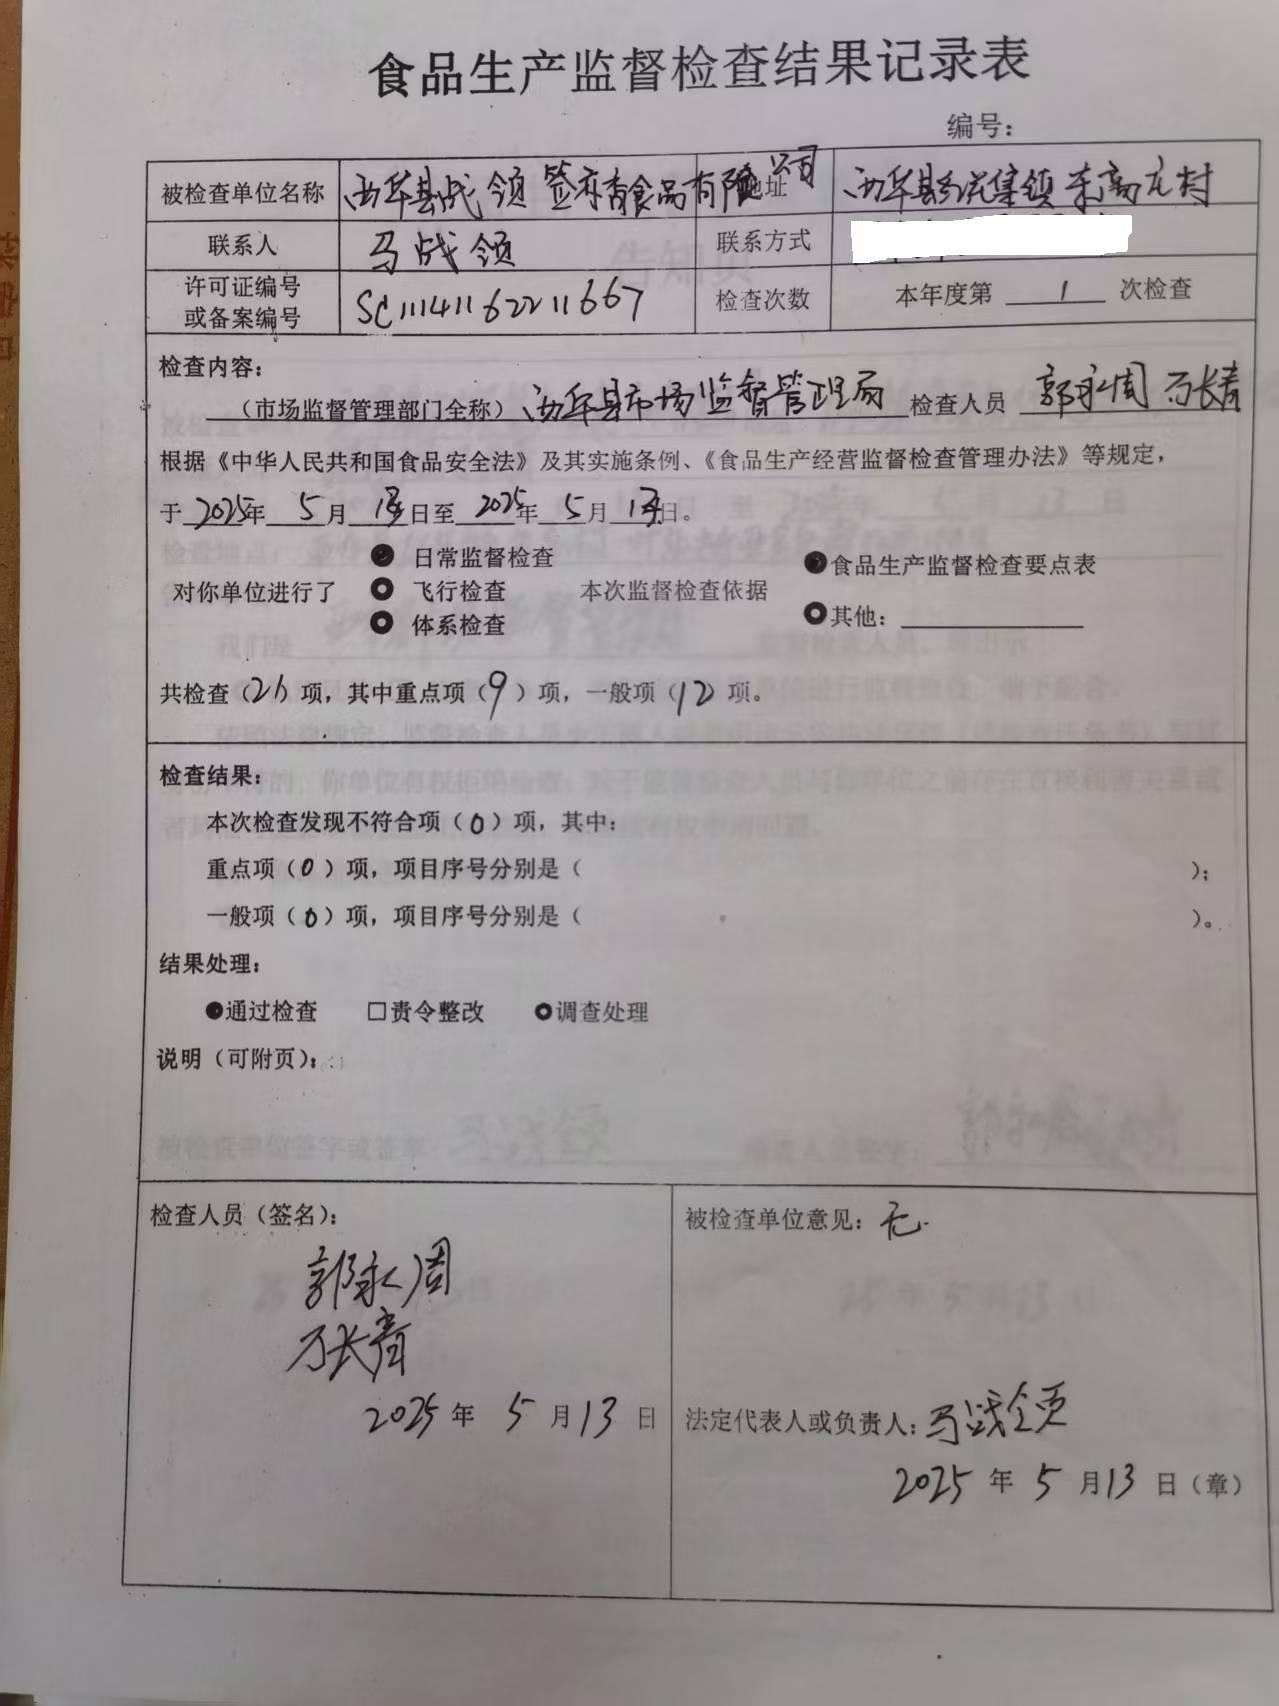 食品生产监督检查结果记录表
编号：
被检查单位名称 西华县战领签亦香食品有限公司 地址 西华县 集镇 高庄村
联系人 马战领 联系方式
许可证编号或备案编号 SC11141162211667 检查次数 本年度第 1 次检查
检查内容：
（市场监督管理部门全称）西华县市场监督管理局 检查人员 郭永周 万长青
根据《中华人民共和国食品安全法》及其实施条例、《食品生产经营监督检查管理办法》等规定，
于 2025年 5 月 13 日至 2025年 5 月 13 日。
对你单位进行了 ● 日常监督检查 本次监督检查依据 ●食品生产监督检查要点表
○ 飞行检查 ○其他：
○ 体系检查
共检查（21）项，其中重点项（9）项，一般项（12）项。
检查结果：
本次检查发现不符合项（0）项，其中：
重点项（0）项，项目序号分别是（ ）；
一般项（0）项，项目序号分别是（ ）。
结果处理：
●通过检查 □责令整改 ○调查处理
说明（可附页）：
检查人员（签名）：
郭永周
万长青
2025 年 5 月 13 日
被检查单位意见：无.
法定代表人或负责人：马战领
2025 年 5 月 13 日（章）